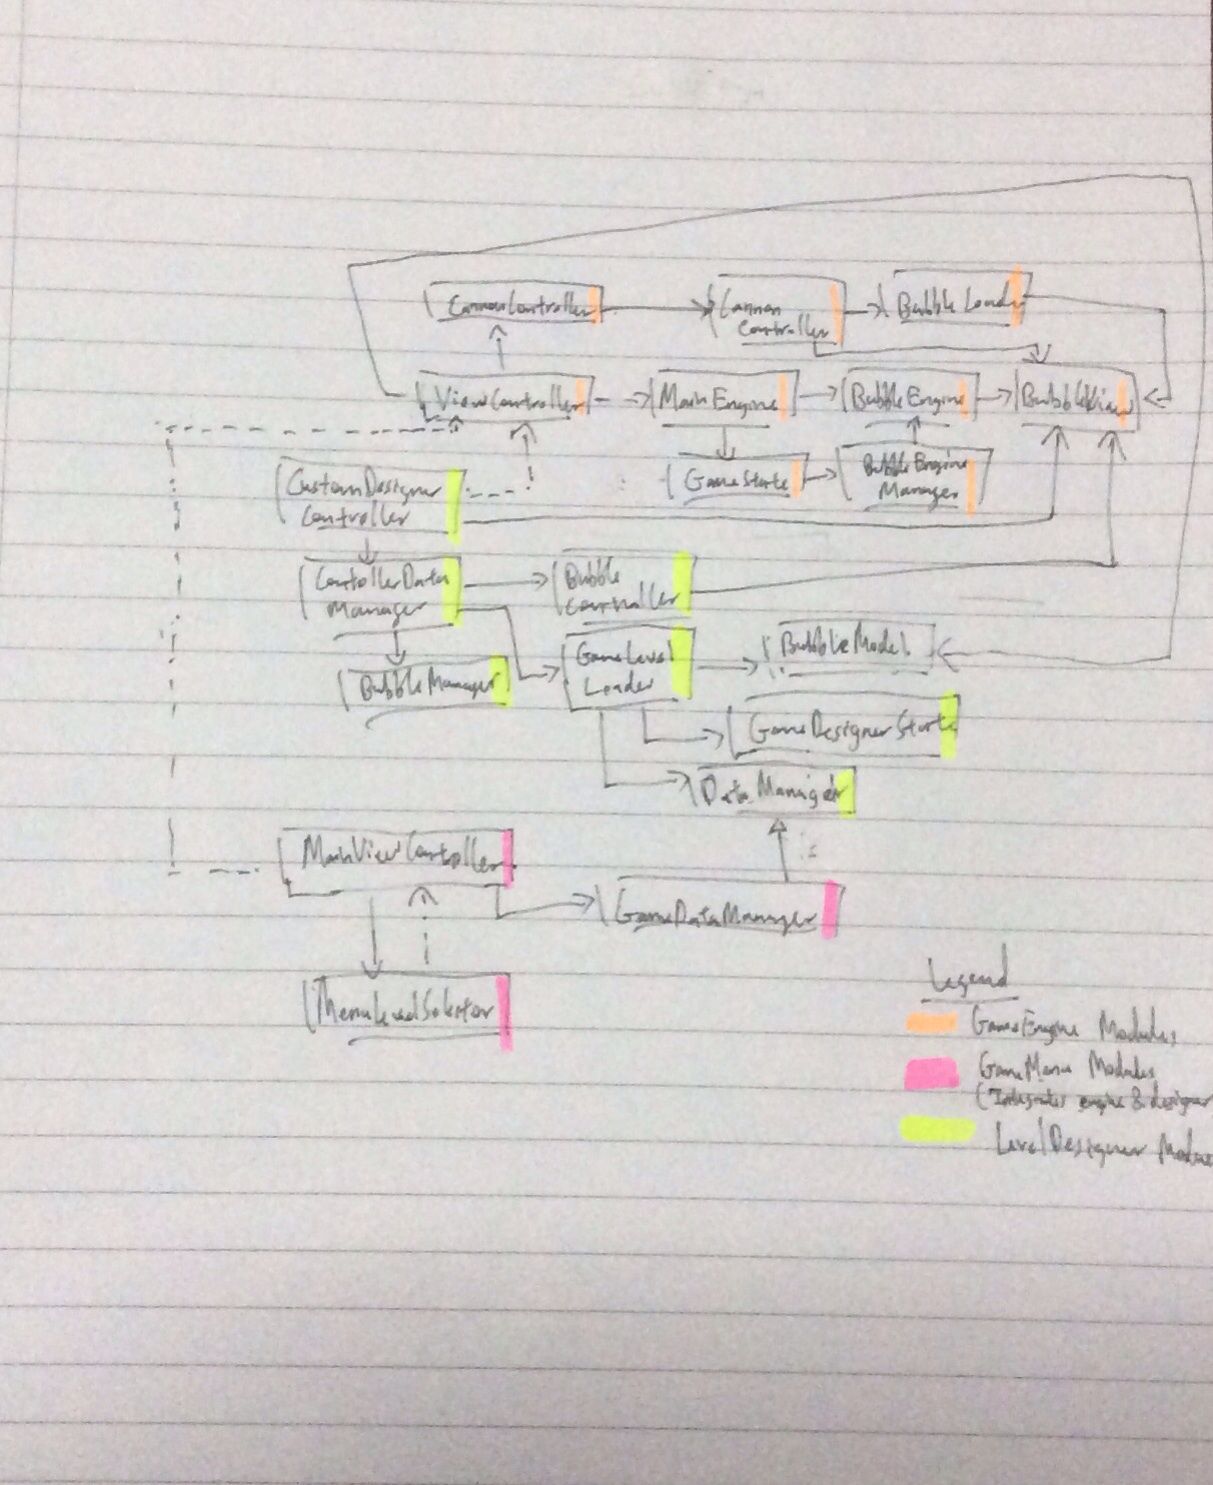 CannonController
Cannon
Controller
BubbleLoader
ViewController
MainEngine
BubbleEngine
BubbleView
CustomDesigner
Controller
GameState
BubbleEngine
Manager
ControllerData
Manager
Bubble
Controller
BubbleManager
GameLevel
Loader
BubbleModel
GameDesignerState
DataManager
MainViewController
GameDataManager
MenuLevelSelector
Legend
GameEngine Modules
GameMenu Modules
(Integrates engine & designer
LevelDesigner Module